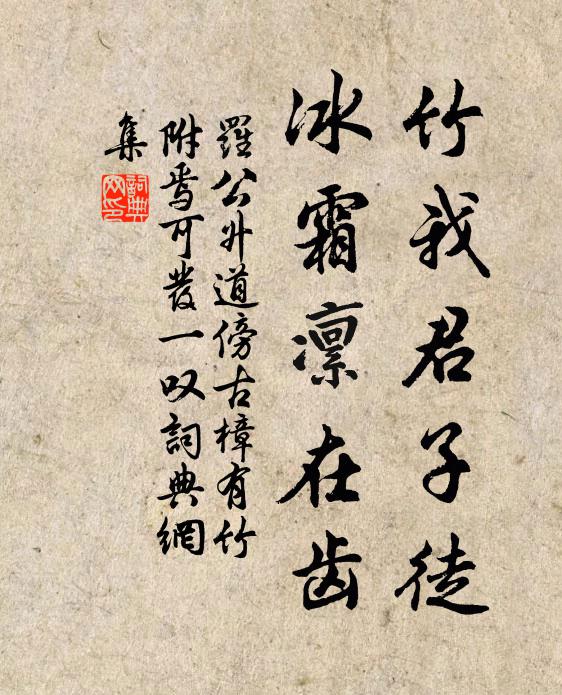 竹我君子徒
冰霜凛在齿
羅公升道傍古樟有竹
附焉可發一叹詞典網
集
詞典
网印